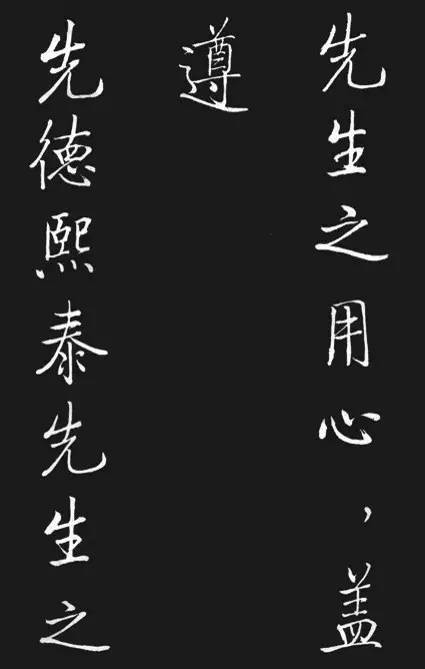 先生之用心，盖
遵
先德熙泰先生之